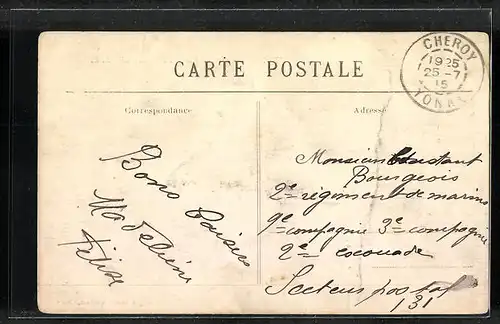 CARTE POSTALE
Correspondance
Adresse
CHEROY
1925
25-7
15
YONNE
Bons Baisers
Madeleine
Félix
Monsieur Constant
Bourgeois
2e régiment de marine
9e compagnie 3e compagnie
2e escouade
Secteur postal
131